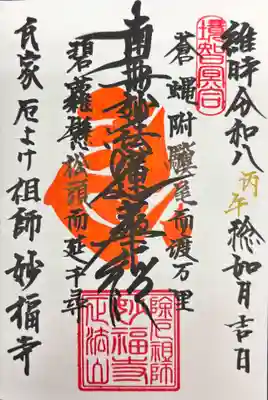 維時令和八丙午稔如月吉日
境智冥合
蒼蝿附驥尾而渡万里
南無妙法蓮華経
碧蘿懸松頭而延千尋
氏家厄よけ祖師妙福寺
除厄祖師
妙福寺
正法山